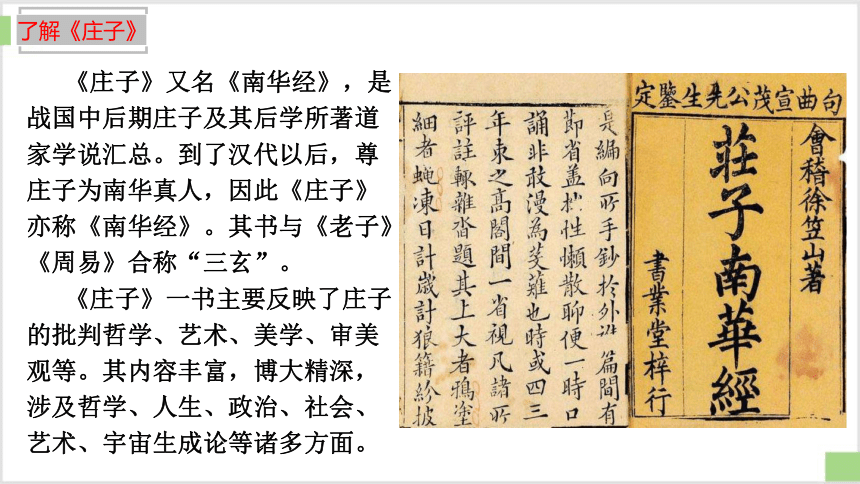 了解《庄子》
《庄子》又名《南华经》，是
战国中后期庄子及其后学所著道
家学说汇总。到了汉代以后，尊
庄子为南华真人，因此《庄子》
亦称《南华经》。其书与《老子》
《周易》合称“三玄”。
《庄子》一书主要反映了庄子
的批判哲学、艺术、美学、审美
观等。其内容丰富，博大精深，
涉及哲学、人生、政治、社会、
艺术、宇宙生成论等诸多方面。
句曲宣茂公先生鑒定
會稽徐笠山著
莊子南華經
書業堂梓行
是編向所手鈔扵外雜篇間有
節省盖抄性懶散聊便一時口
誦非敢漫為芟薙也時或四三
年束之髙閣間一省視凡諸所
評註輙雜沓題其上大者鴉塗
細者蝇凍日計歲計狼籍紛披